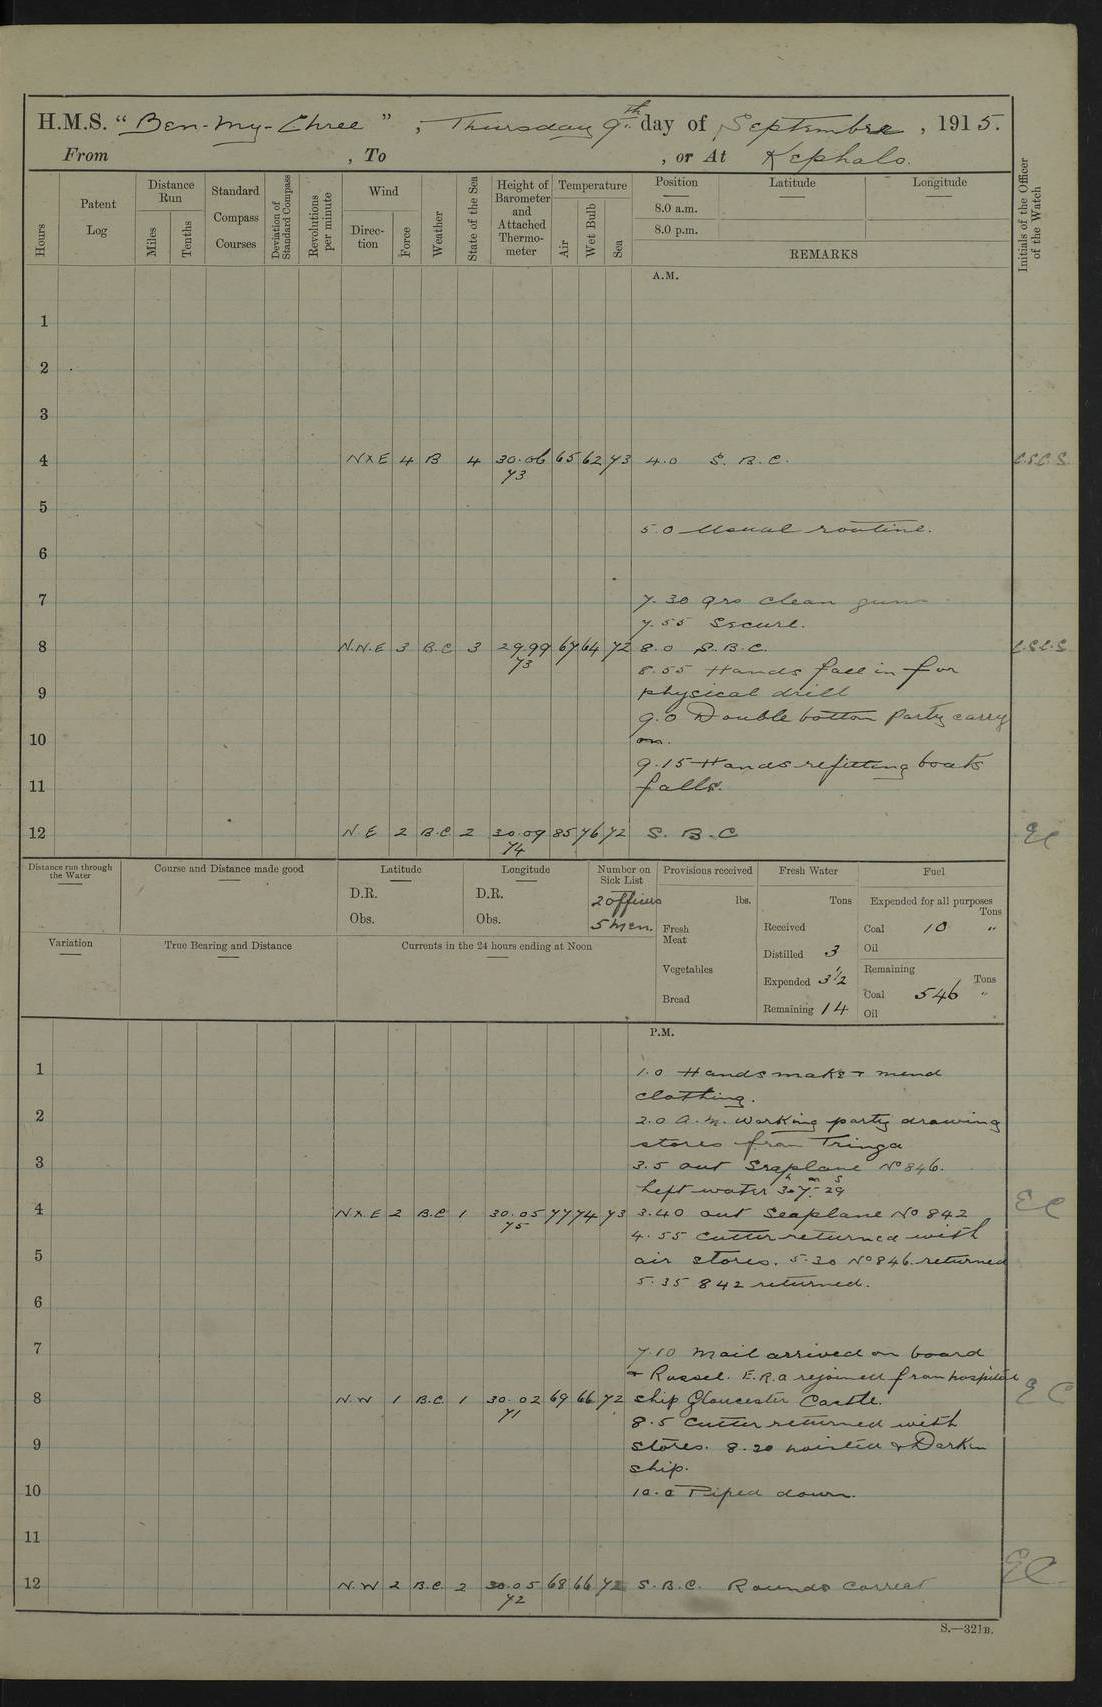 H.M.S. "Ben-my-Chree", Thursday 9th day of September, 1915.
From , To , or At Kephalo.
Hours
Patent Log
Distance Run
Miles
Tenths
Standard Compass Courses
Deviation of Standard Compass
Revolutions per minute
Wind
Direction
Force
Weather
State of the Sea
Height of Barometer and Attached Thermometer
Temperature
Air
Wet Bulb
Sea
Position Latitude Longitude
8.0 a.m.
8.0 p.m.
REMARKS
Initials of the Officer of the Watch
A.M.
1
2
3
4 NXE 4 B 4 30.06 65 62 73 4.0 S. B. C. C.S.C.S.
73
5
5.0 Usual routine.
6
7 7.30 Qrs clean guns
7.55 Secure.
8 N.N.E 3 B.C 3 29.99 67 64 72 8.0 S.B.C. C.S.C.S
73
8.55 Hands fall in for
9 physical drill
9.0 Double bottom party carry
10 on.
9.15 Hands refitting boats
11 falls.
12 N.E 2 B.C 2 30.09 85 76 72 S. B. C EC
74
Distance run through the Water
Course and Distance made good
Latitude
D.R.
Obs.
Longitude
D.R.
Obs.
Number on Sick List
2 officers
5 men.
Provisions received
lbs.
Fresh Meat
Vegetables
Bread
Fresh Water
Tons
Received
Distilled 3
Expended 3½
Remaining 14
Fuel
Expended for all purposes
Tons
Coal 10 "
Oil
Remaining
Tons
Coal 546 "
Oil
Variation
True Bearing and Distance
Currents in the 24 hours ending at Noon
P.M.
1 1.0 Hands make + mend
clothing.
2 2.0 A.M. Working party drawing
stores from Tringa
3 3.5 out Seaplane No 846.
Left water 3h 7m 29s
4 NXE 2 B.C 1 30.05 77 74 73 3.40 out Seaplane No 842 EC
75
4.55 Cutter returned with
5 air stores. 5.30 No 846 returned
5.35 842 returned.
6
7 7.10 Mail arrived on board
+ Russel. E.R.A rejoined from hospital
8 N.W 1 B.C. 1 30.02 69 66 72 ship Gloucester Castle. EC
71
8.5 Cutter returned with
9 stores. 8.20 hoisted & Darken
ship.
10 10.0 Piped down.
11
12 N.W 2 B.C. 2 30.05 68 66 72 S.B.C. Rounds Correct EC
72
S.—321B.